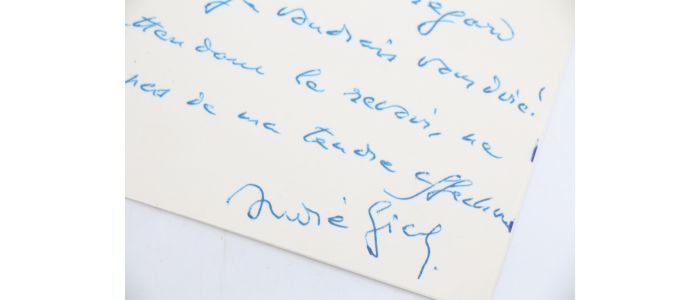 regard
je voudrais vous dire!
attendant le revoir, ne
pas de ma tendre affection
André Gide.